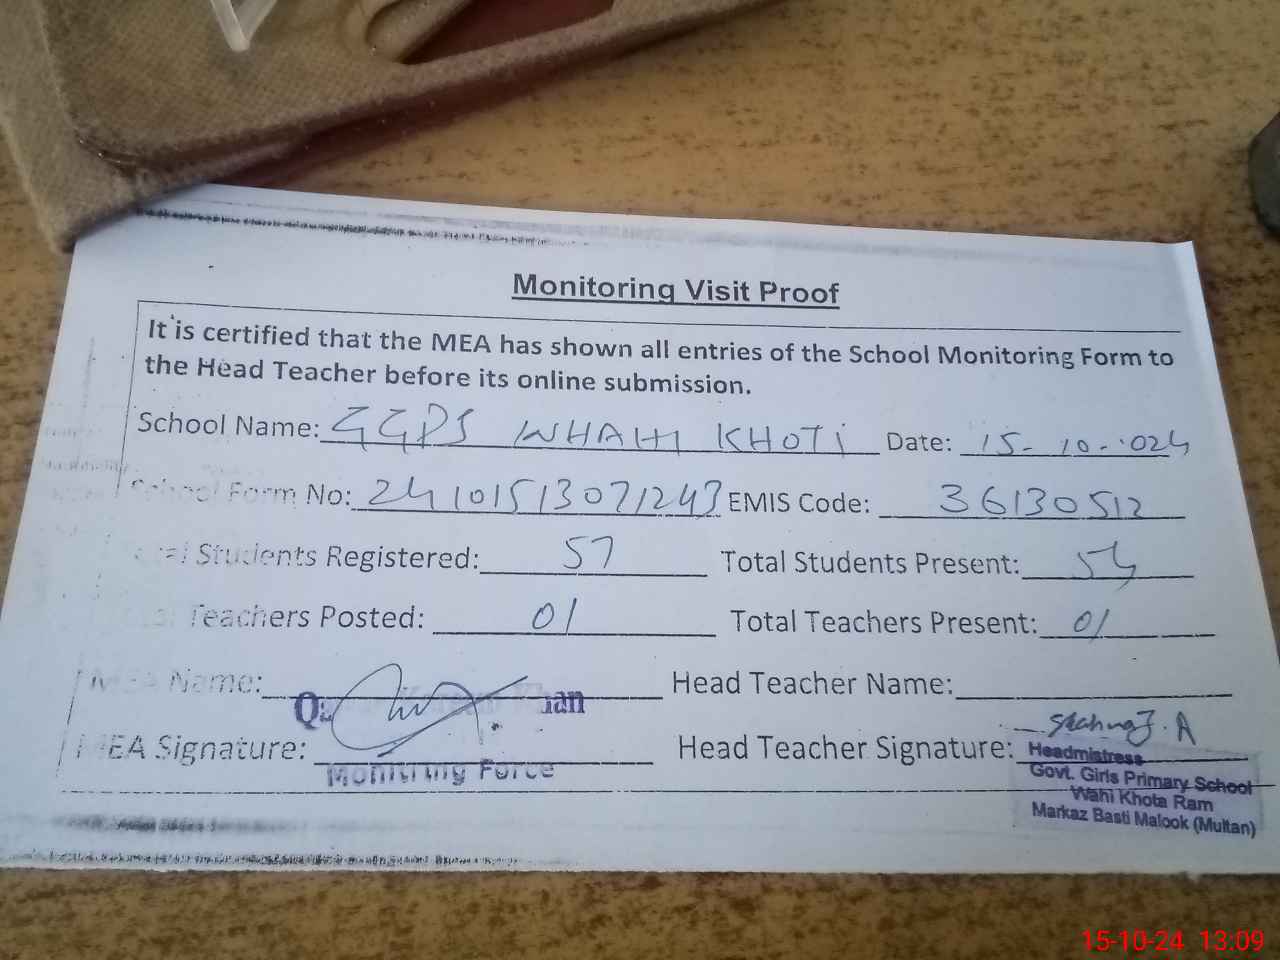 Monitoring Visit Proof
It is certified that the MEA has shown all entries of the School Monitoring Form to
the Head Teacher before its online submission.
School Name: GGPS WHAHI KHOTI Date: 15-10-024
School Form No: 24101513071243 EMIS Code: 36130512
Students Registered: 57 Total Students Present: 54
Teachers Posted: 01 Total Teachers Present: 01
MEA Name: Head Teacher Name:
Khan
MEA Signature: Head Teacher Signature:
Monitring Force
Headmistress
Govt. Girls Primary School
Wahi Khota Ram
Markaz Basti Malook (Multan)
15-10-24 13:09